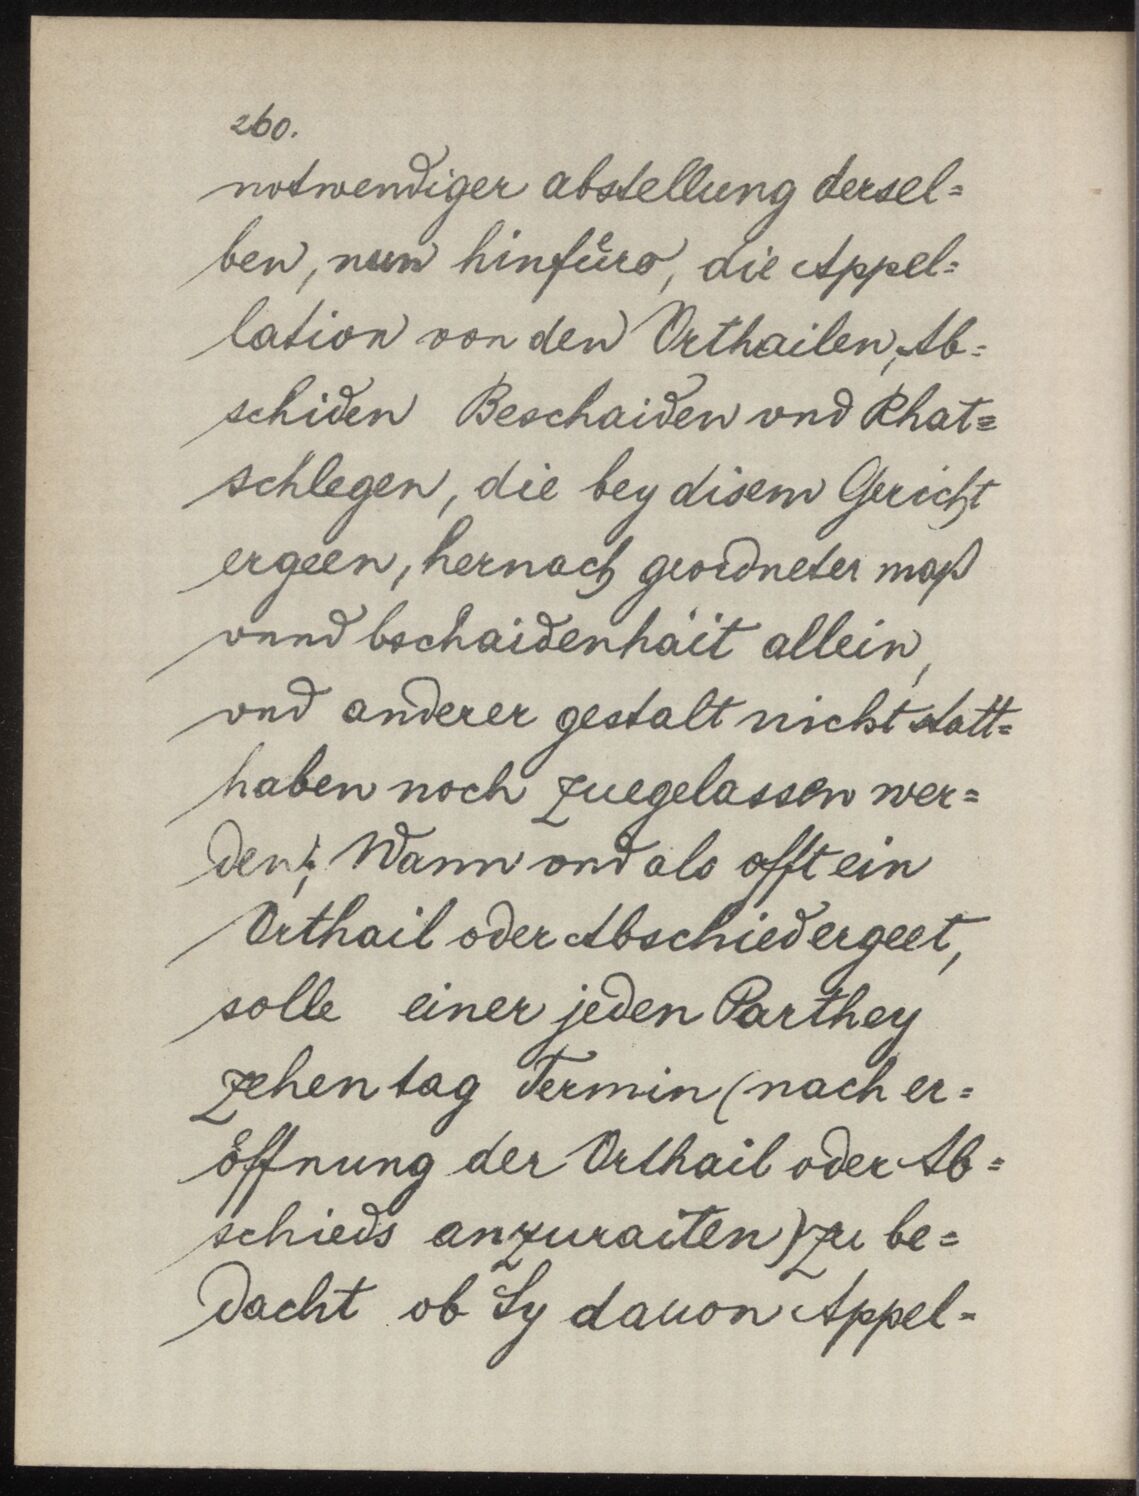 260.
notwendiger abstellung dersel=
ben, nun hinfüro, die Appel=
lation von den Vrthailen, Ab=
schiden Beschaiden vnd Rhat=
schlegen, die bey disem Gericht
ergeen, hernach geordneter maß
vnnd bschaidenhait allein,
vnd anderer gestalt nicht statt=
haben noch zuegelassen wer=
den; Wann vnd als offt ein
Vrthail oder Abschied ergeet,
solle einer jeden Parthey
zehen tag Termin (nach er=
öffnung der Vrthail oder Ab=
schieds anzuraiten) zu be=
dacht ob Sy dauon Appel=